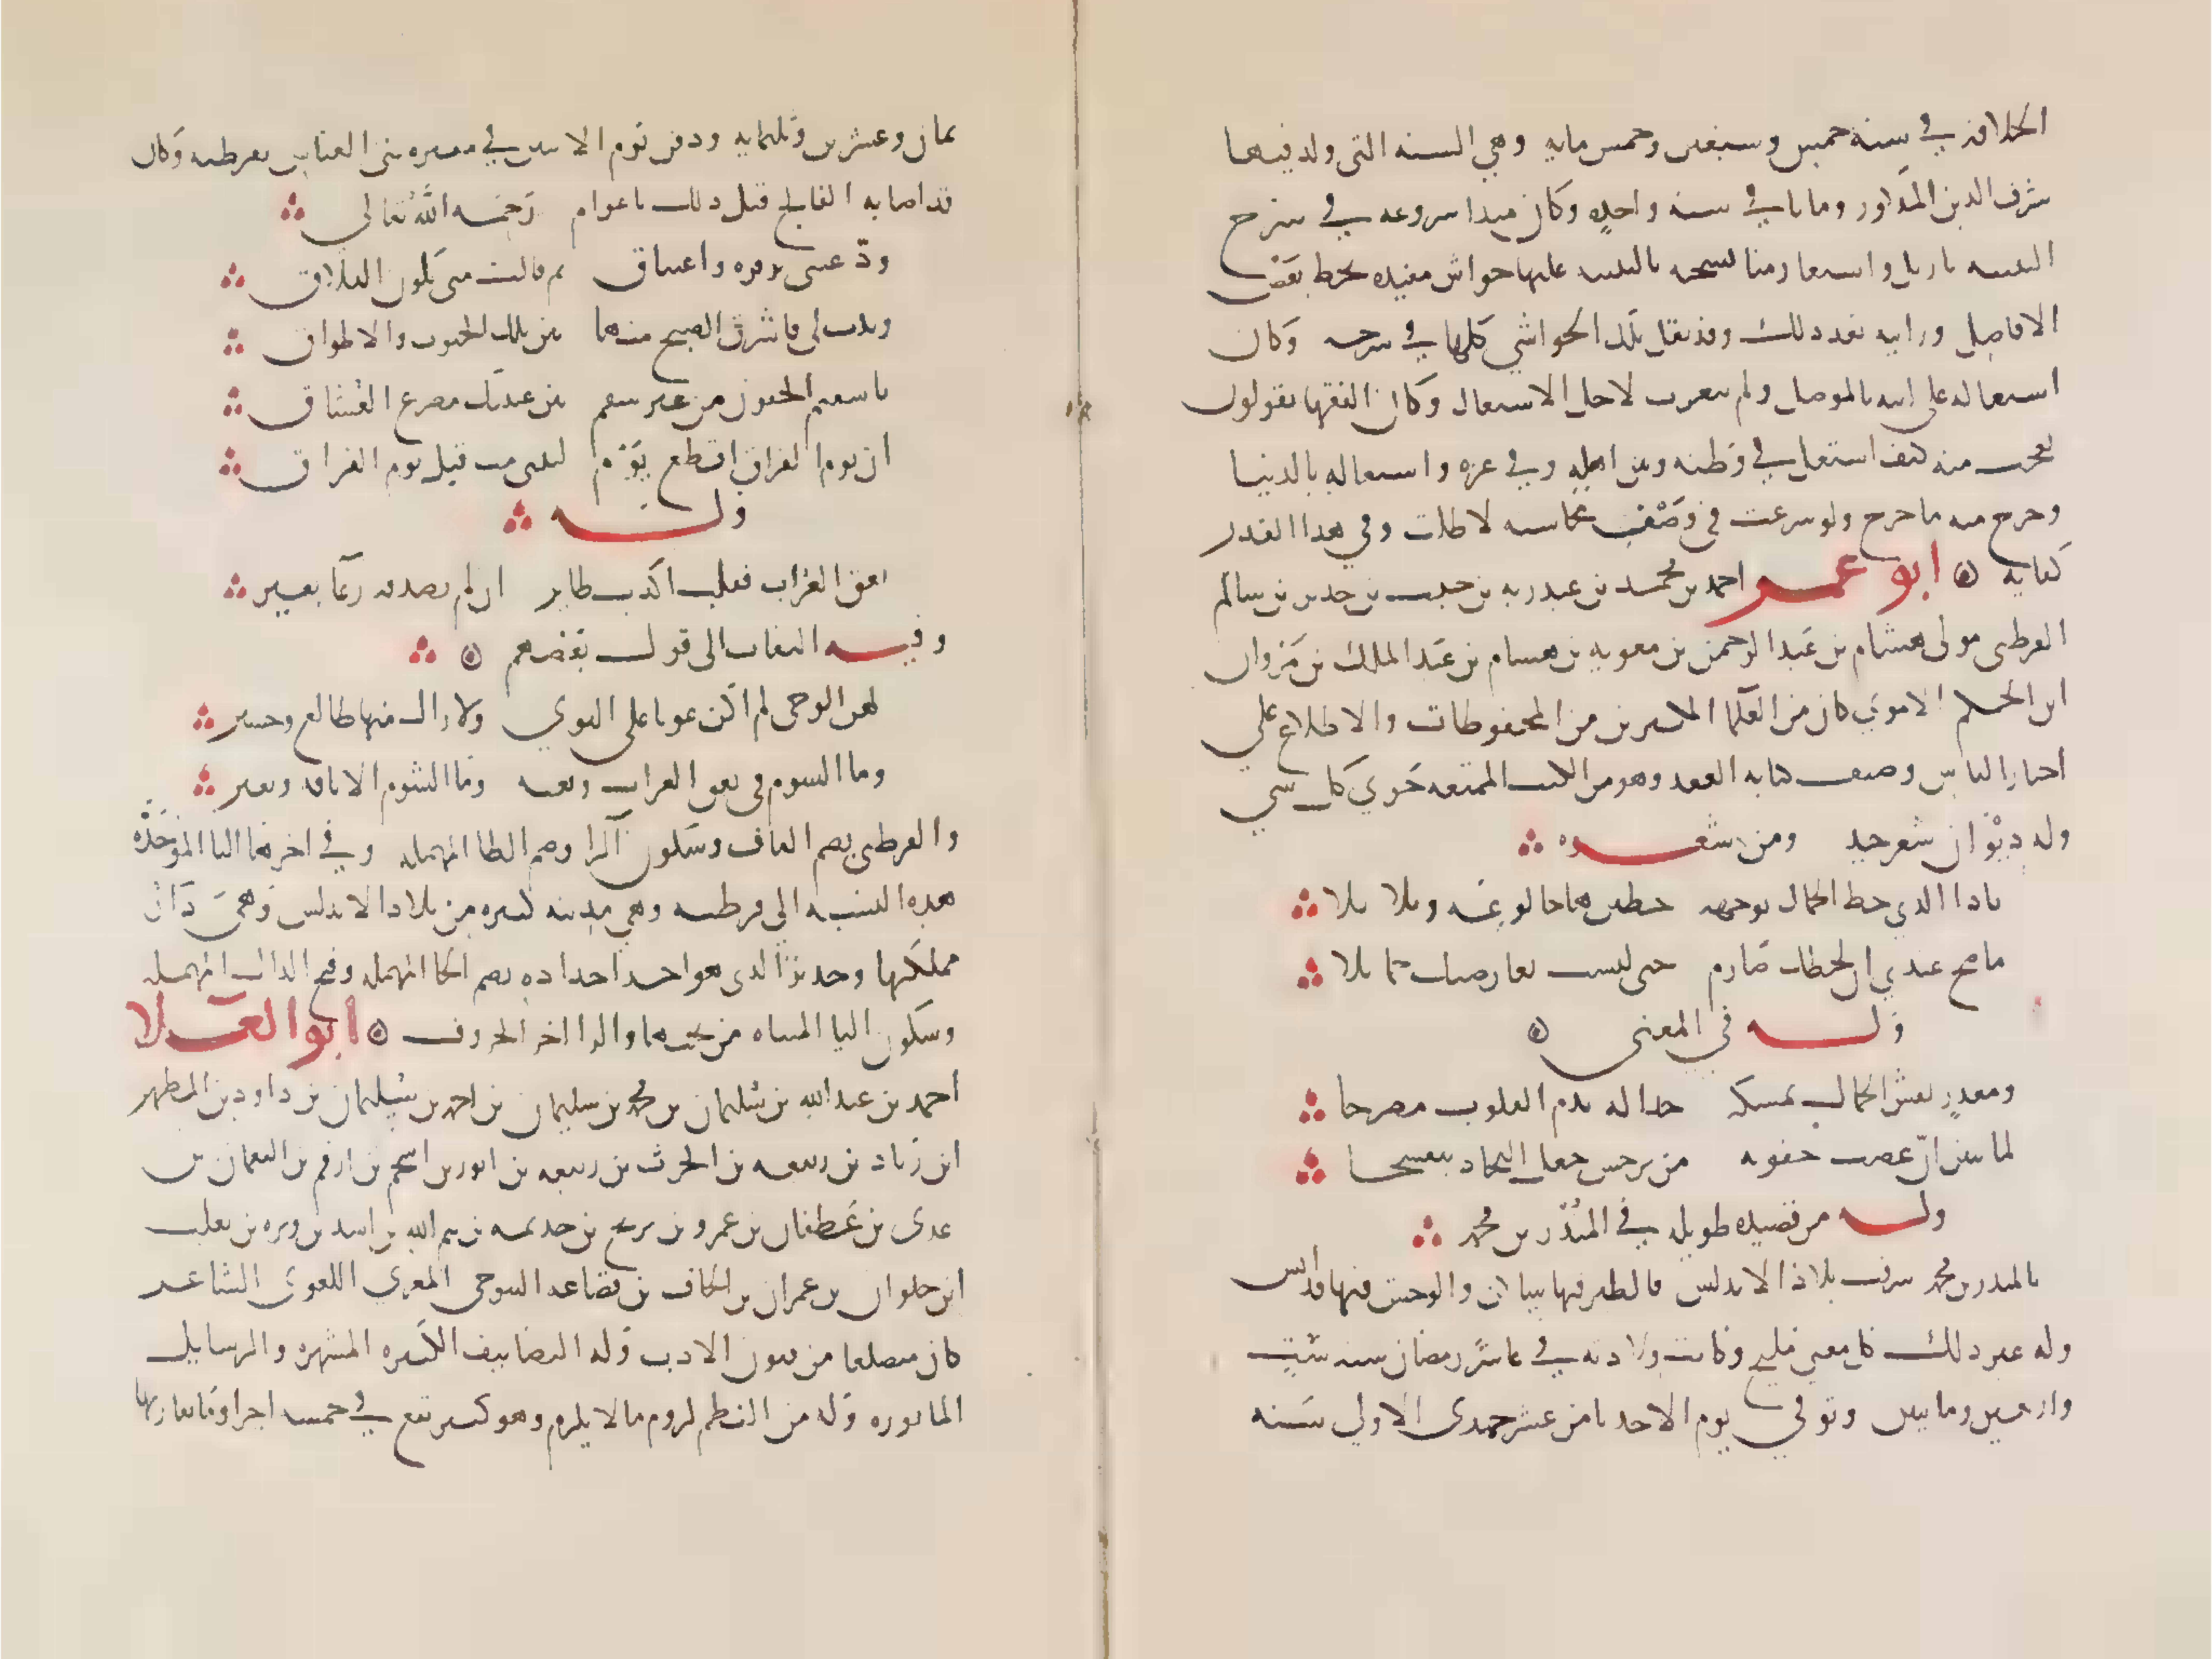 الخلافة في سنة خمس وسبعين وخمس مايه وهي السنه التي ولد فيها
شرف الدين المذكور وماتا في سنه واحده وكان مبدا شروعه في شرح
التنبيه باربل واستعار منا نسخه بالتنبيه عليها حواش مفيده بخط بعض
الافاضل ورايته بعد ذلك وقد نقل تلك الحواشي كلها في شرحه وكان
اشتغاله على ابيه بالموصل ولم يتغرب لاجل الاشتغال وكان الفقها يقولون
نعجب منه كيف اشتغل في وطنه وبين اهله وفي عزه واشتغاله بالدنيا
وخرج منه ما خرج ولو شرعت في وصف محاسنه لاطلت وفي هذا القدر
كفايه ابو عمر احمد بن محمد بن عبد ربه بن حبيب بن حدير بن سالم
القرطبي مولى هشام بن عبد الرحمن بن معويه بن هشام بن عبد الملك بن مروان
ابن الحكم الاموي كان من العلما المكثرين من المحفوظات والاطلاع على
اخبار الناس وصنف كتابه العقد وهو من الكتب الممتعه حوى كل شي
وله ديوان شعر جيد ومن شعره
يا ذا الذي خط الجمال بوجهه خطين هاجا لوعة وبلابلا
ما صح عندي ان لحظك صارم حتى لبست بعارضيك حمايلا
وله في المعنى
ومعذر نقش الجمال بمسكه خدا له بدم القلوب مضرجا
لما تيقن ان عضب جفونه من نرجس جعل النجاد بنفسجا
وله من قصيده طويله في المنذر بن محمد
بالمنذر بن محمد شرفت بلاد الاندلس فالطير فيها ساكن والوحش فيها قد انس
وله غير ذلك كل معنى مليح وكانت ولادته في عاشر رمضان سنه ست
واربعين ومايتين وتوفي يوم الاحد ثامن عشر جمدى الاولي سنه
ثمان وعشرين وثلثمايه ودفن يوم الاثنين في مقبره بني العباس بقرطبه وكان
قد اصابه الفالج قبل ذلك باعوام رحمه الله تعالي
ودعتني بزفره واعتناق ثم قالت متى يكون التلاق
وبدت لي فاشرق الصبح منها بين تلك الجيوب والاطواق
يا سقيم الجفون من غير سقم بين عينيك مصرع العشاق
ان يوم الفراق اقطع يوم ليتني مت قبل يوم الفراق
وله
نعق الغراب فقلت اكذب طاير ان لم يصدقه رغا بعير
وفيه التفات الى قول بعضهم
لهن الوحى لم اكن عونا على النوي ولا زال منها طالع وحسير
وما الشوم في نعق الغراب ونعبه وما الشوم الا ناقه وبعير
والقرطبي بضم القاف وسكون الرا وضم الطا المهمله وفي اخرها البا الموحده
هذه النسبه الى قرطبه وهي مدينه كبيره من بلاد الاندلس وهي دار
مملكتها وحدير الذى هو احد اجداده بضم الحا المهمله وفتح الدال المهمله
وسكون اليا المثناه من تحتها والرا اخر الحروف ابو العلا
احمد بن عبد الله بن سليمان بن محمد بن سليمان بن احمد بن سليمان بن داود بن المطهر
ابن زياد بن ربيعه بن الحرث بن ربيعه بن انور بن اسحم بن ارقم بن النعمان بن
عدى بن غطفان بن عمرو بن بريح بن خديمه بن تيم الله بن اسد بن وبره بن تغلب
ابن حلوان بن عمران بن الحاف بن قضاعه التنوخي المعري اللغوى الشاعر
كان متضلعا من فنون الادب وله التصانيف الكثيره المشهره والرسايل
الماثوره وله من النظم لزوم ما لا يلزم وهو كبير يقع في خمسه اجزا وما يقاربها